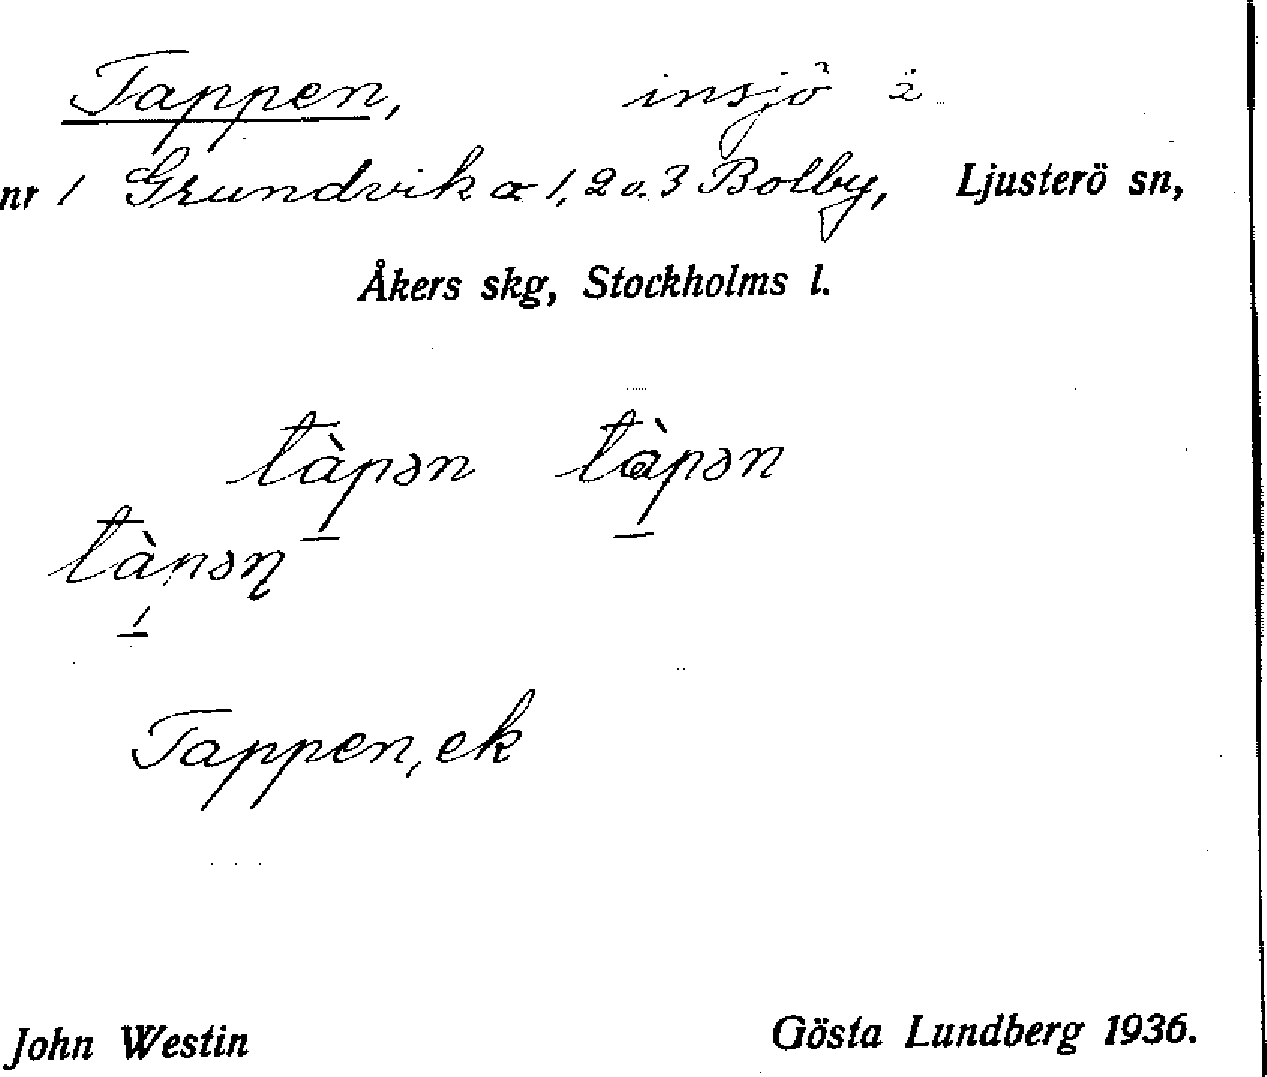 Tappen, insjö i
nr 1 Grundvik o 1, 2 o. 3 Bolby, Ljusterö sn,
Åkers skg, Stockholms l.
tàpən tàpən
tànən̥
Tappen, ek
John Westin Gösta Lundberg 1936.